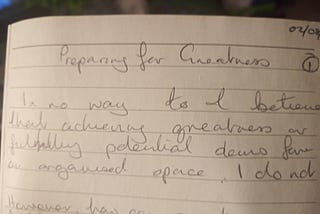 02/08
Preparing for Greatness ①
In no way do I believe
that achieving greatness or
potential
an organised space. I do not
However, how